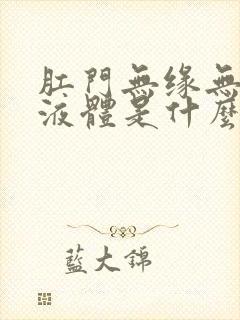 肛門無缘無
液體是什麼
藍大錦